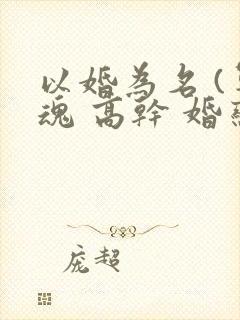 以婚為名(
魂 高幹 婚
庞超